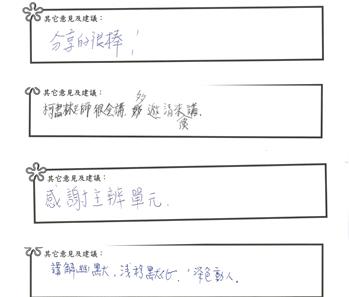 其它意見及建議：
分享的很棒！
其它意見及建議：
柯書林老師很會講，多邀請來講演
其它意見及建議：
感謝主辦單元．
其它意見及建議：
講解幽默，淺移默化，深色動人．